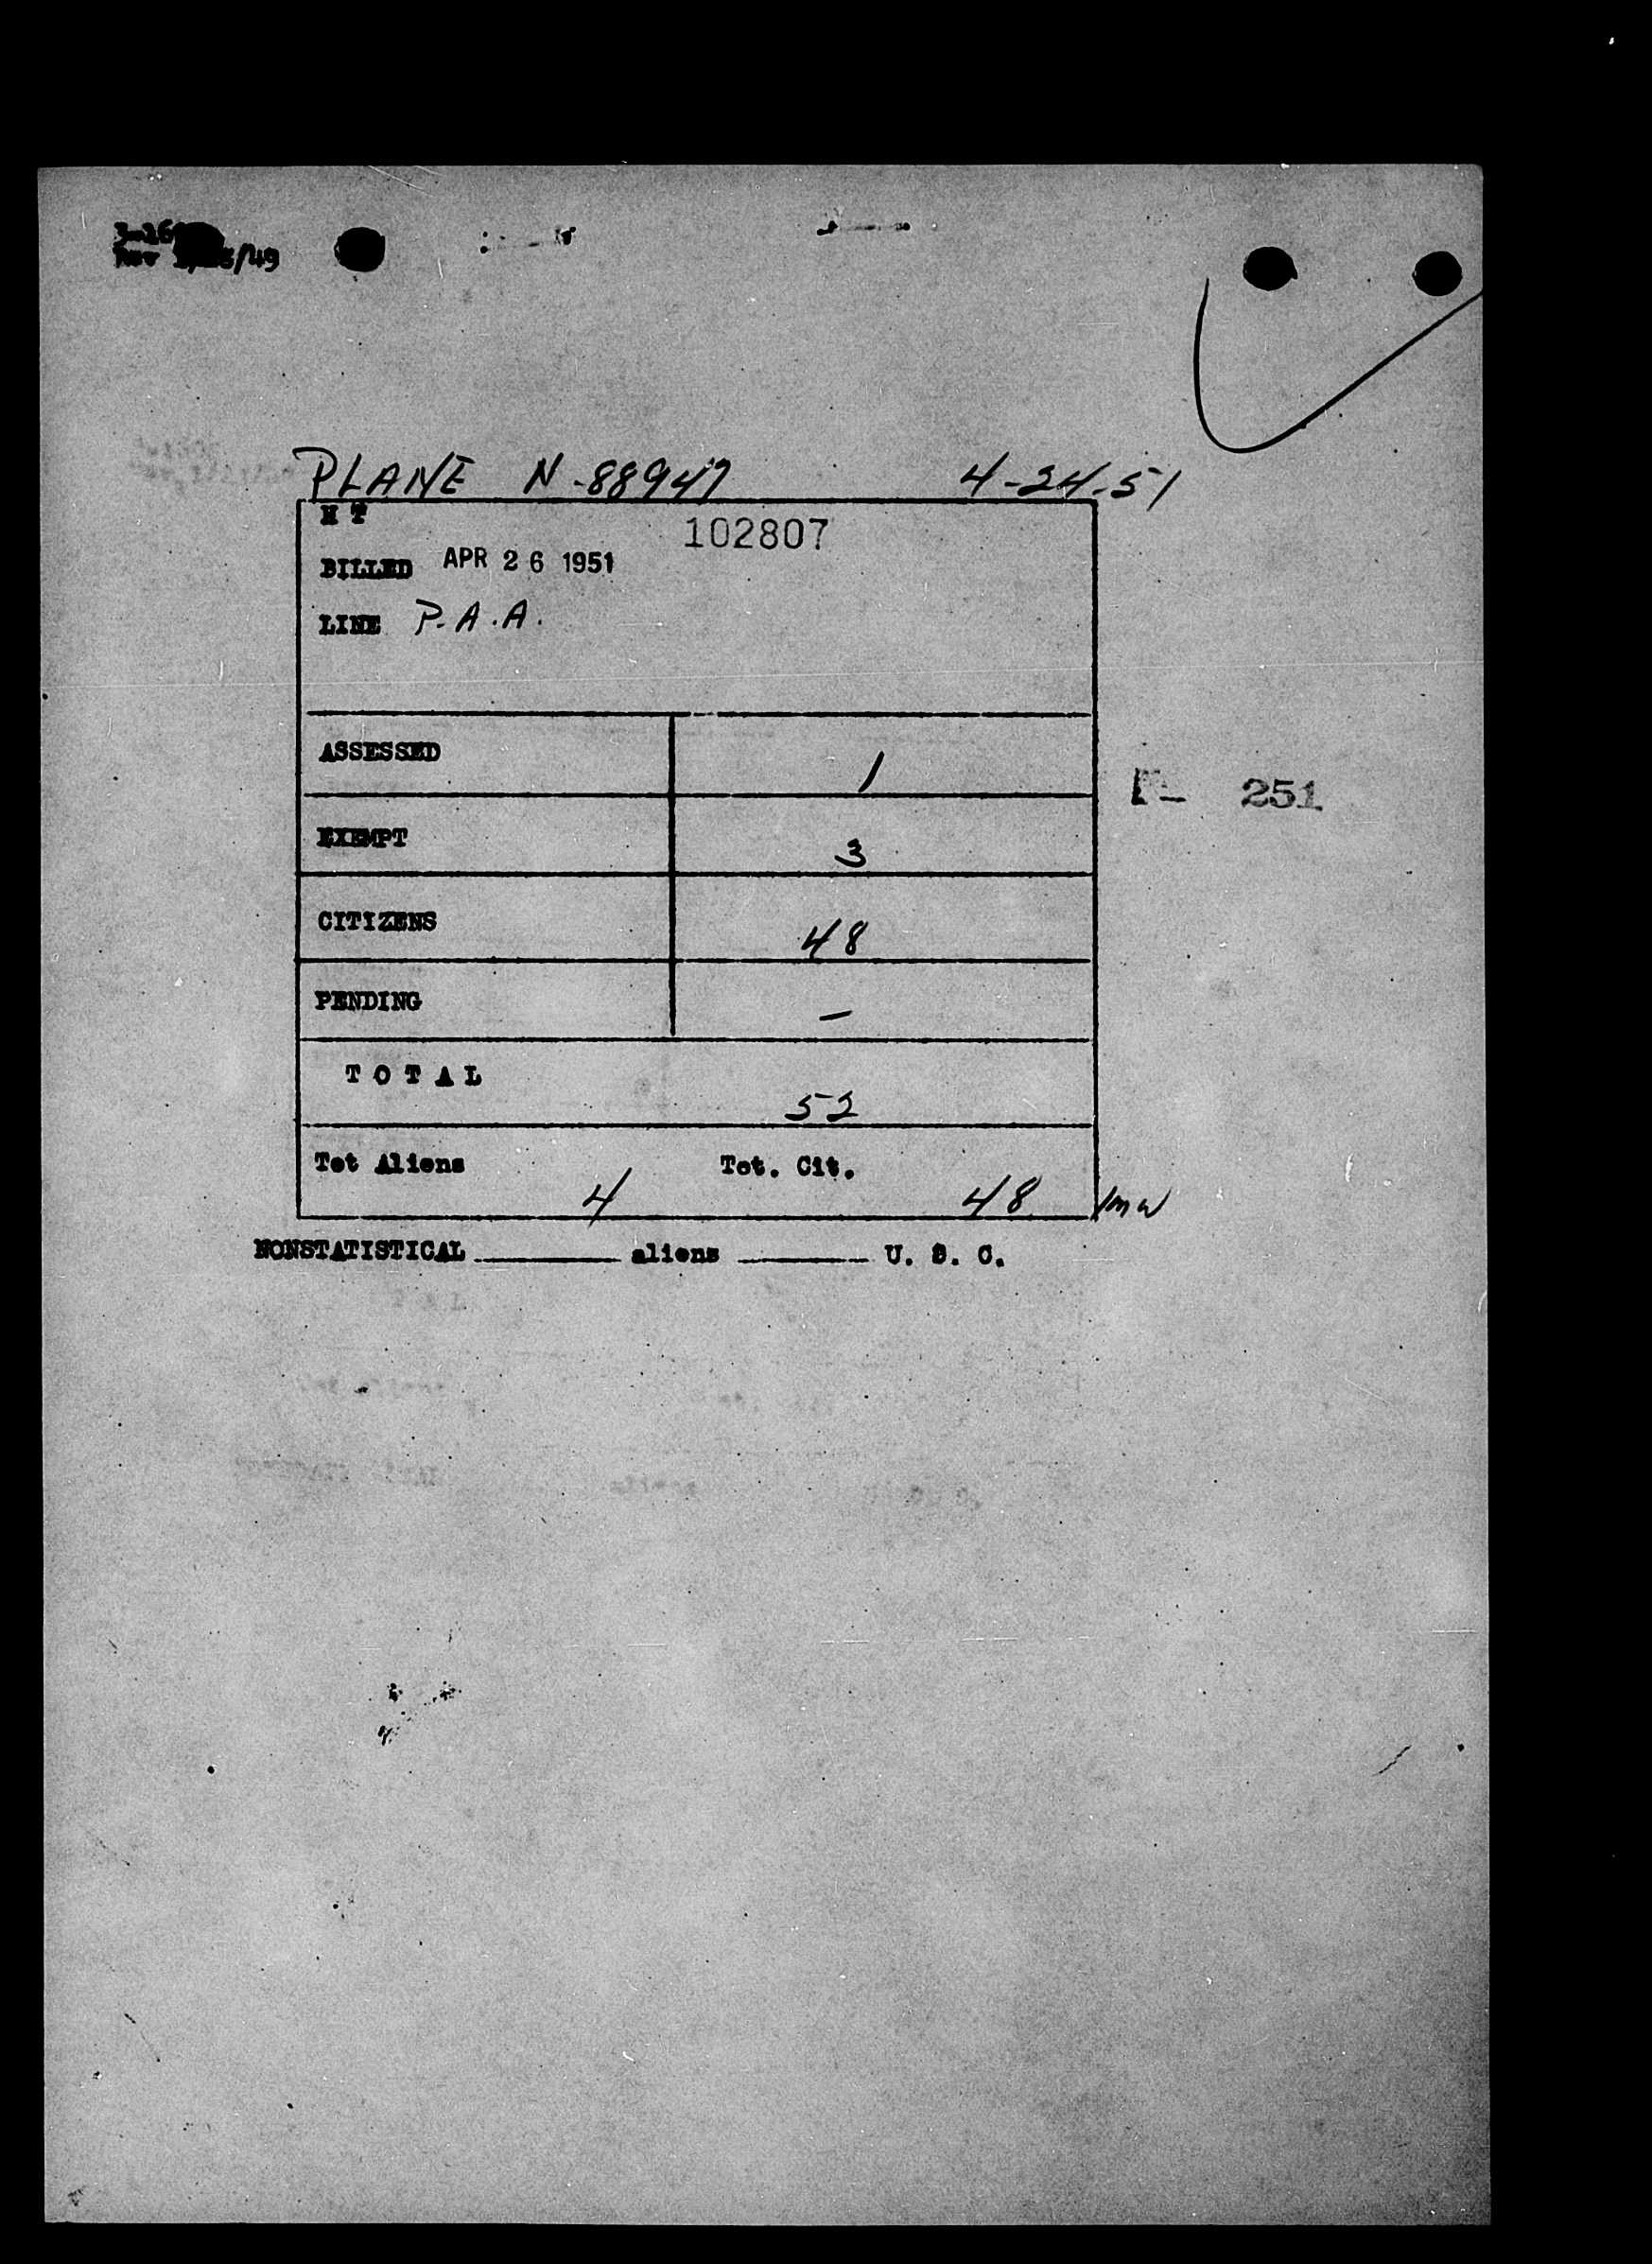 /49
PLANE N-88947 4-24-51
H T 102807
BILLED APR 26 1951
LINE P.A.A.
ASSESSED 1
251
EXEMPT 3
CITIZENS 48
PENDING —
TOTAL 52
Tot Aliens 4 Tot. Cit. 48
NONSTATISTICAL ______ aliens ______ U. S. C.